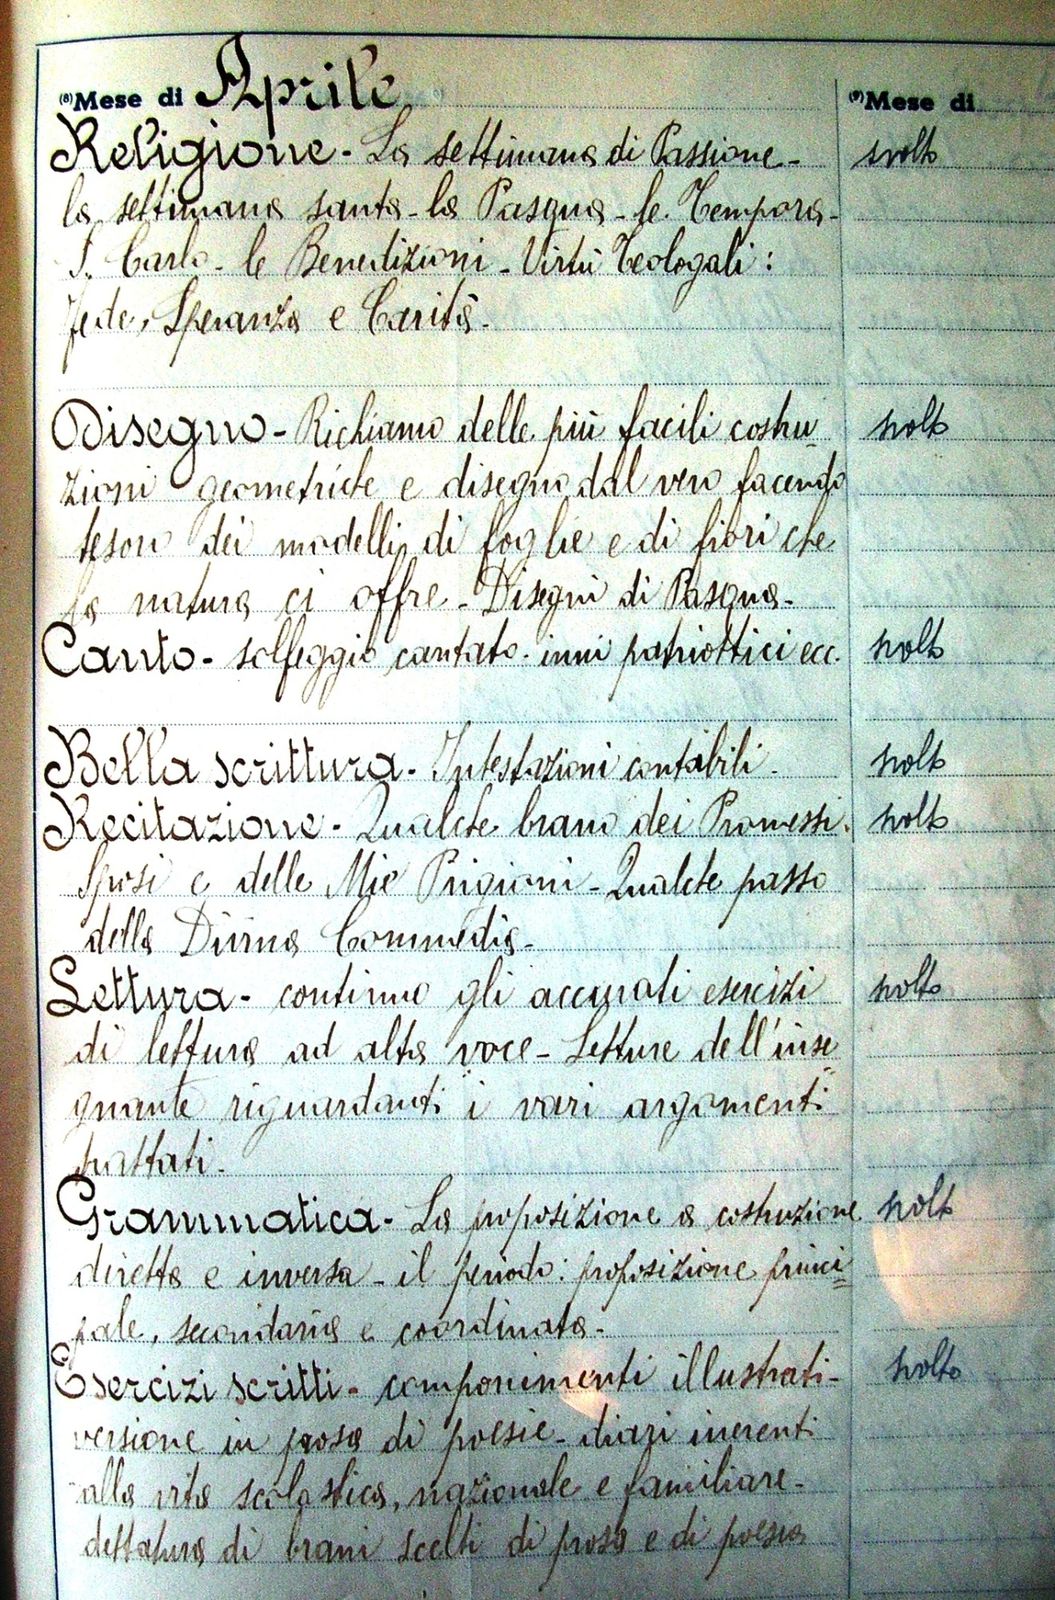 (8) Mese di Aprile (9) Mese di
Religione - La settimana di Passione - svolto
la settimana santa - la Pasqua - le Tempora -
S. Carlo - le Benedizioni - Virtù Teologali :
Fede, Speranza e Carità.
Disegno - Richiamo delle più facili costru- svolto
zioni geometriche e disegno dal vero facendo
tesoro dei modelli di foglie e di fiori che
la natura ci offre - Disegni di Pasqua -
Canto - solfeggio cantato - inni patriottici ecc. svolto
Bella scrittura - Intestazioni contabili - svolto
Recitazione - Qualche brano dei Promessi svolto
Sposi e delle Mie Prigioni - Qualche passo
della Divina Commedia -
Lettura - continuo gli accurati esercizi svolto
di lettura ad alta voce - Letture dell'inse
gnante riguardanti i vari argomenti
trattati -
Grammatica - La proposizione a costruzione svolto
diretta e inversa - il periodo : proposizione princi-
pale, secondaria e coordinata -
Esercizi scritti - componimenti illustrati - svolto
versione in prosa di poesie - diari inerenti
alla vita scolastica, nazionale e familiare -
dettatura di brani scelti di prosa e di poesia